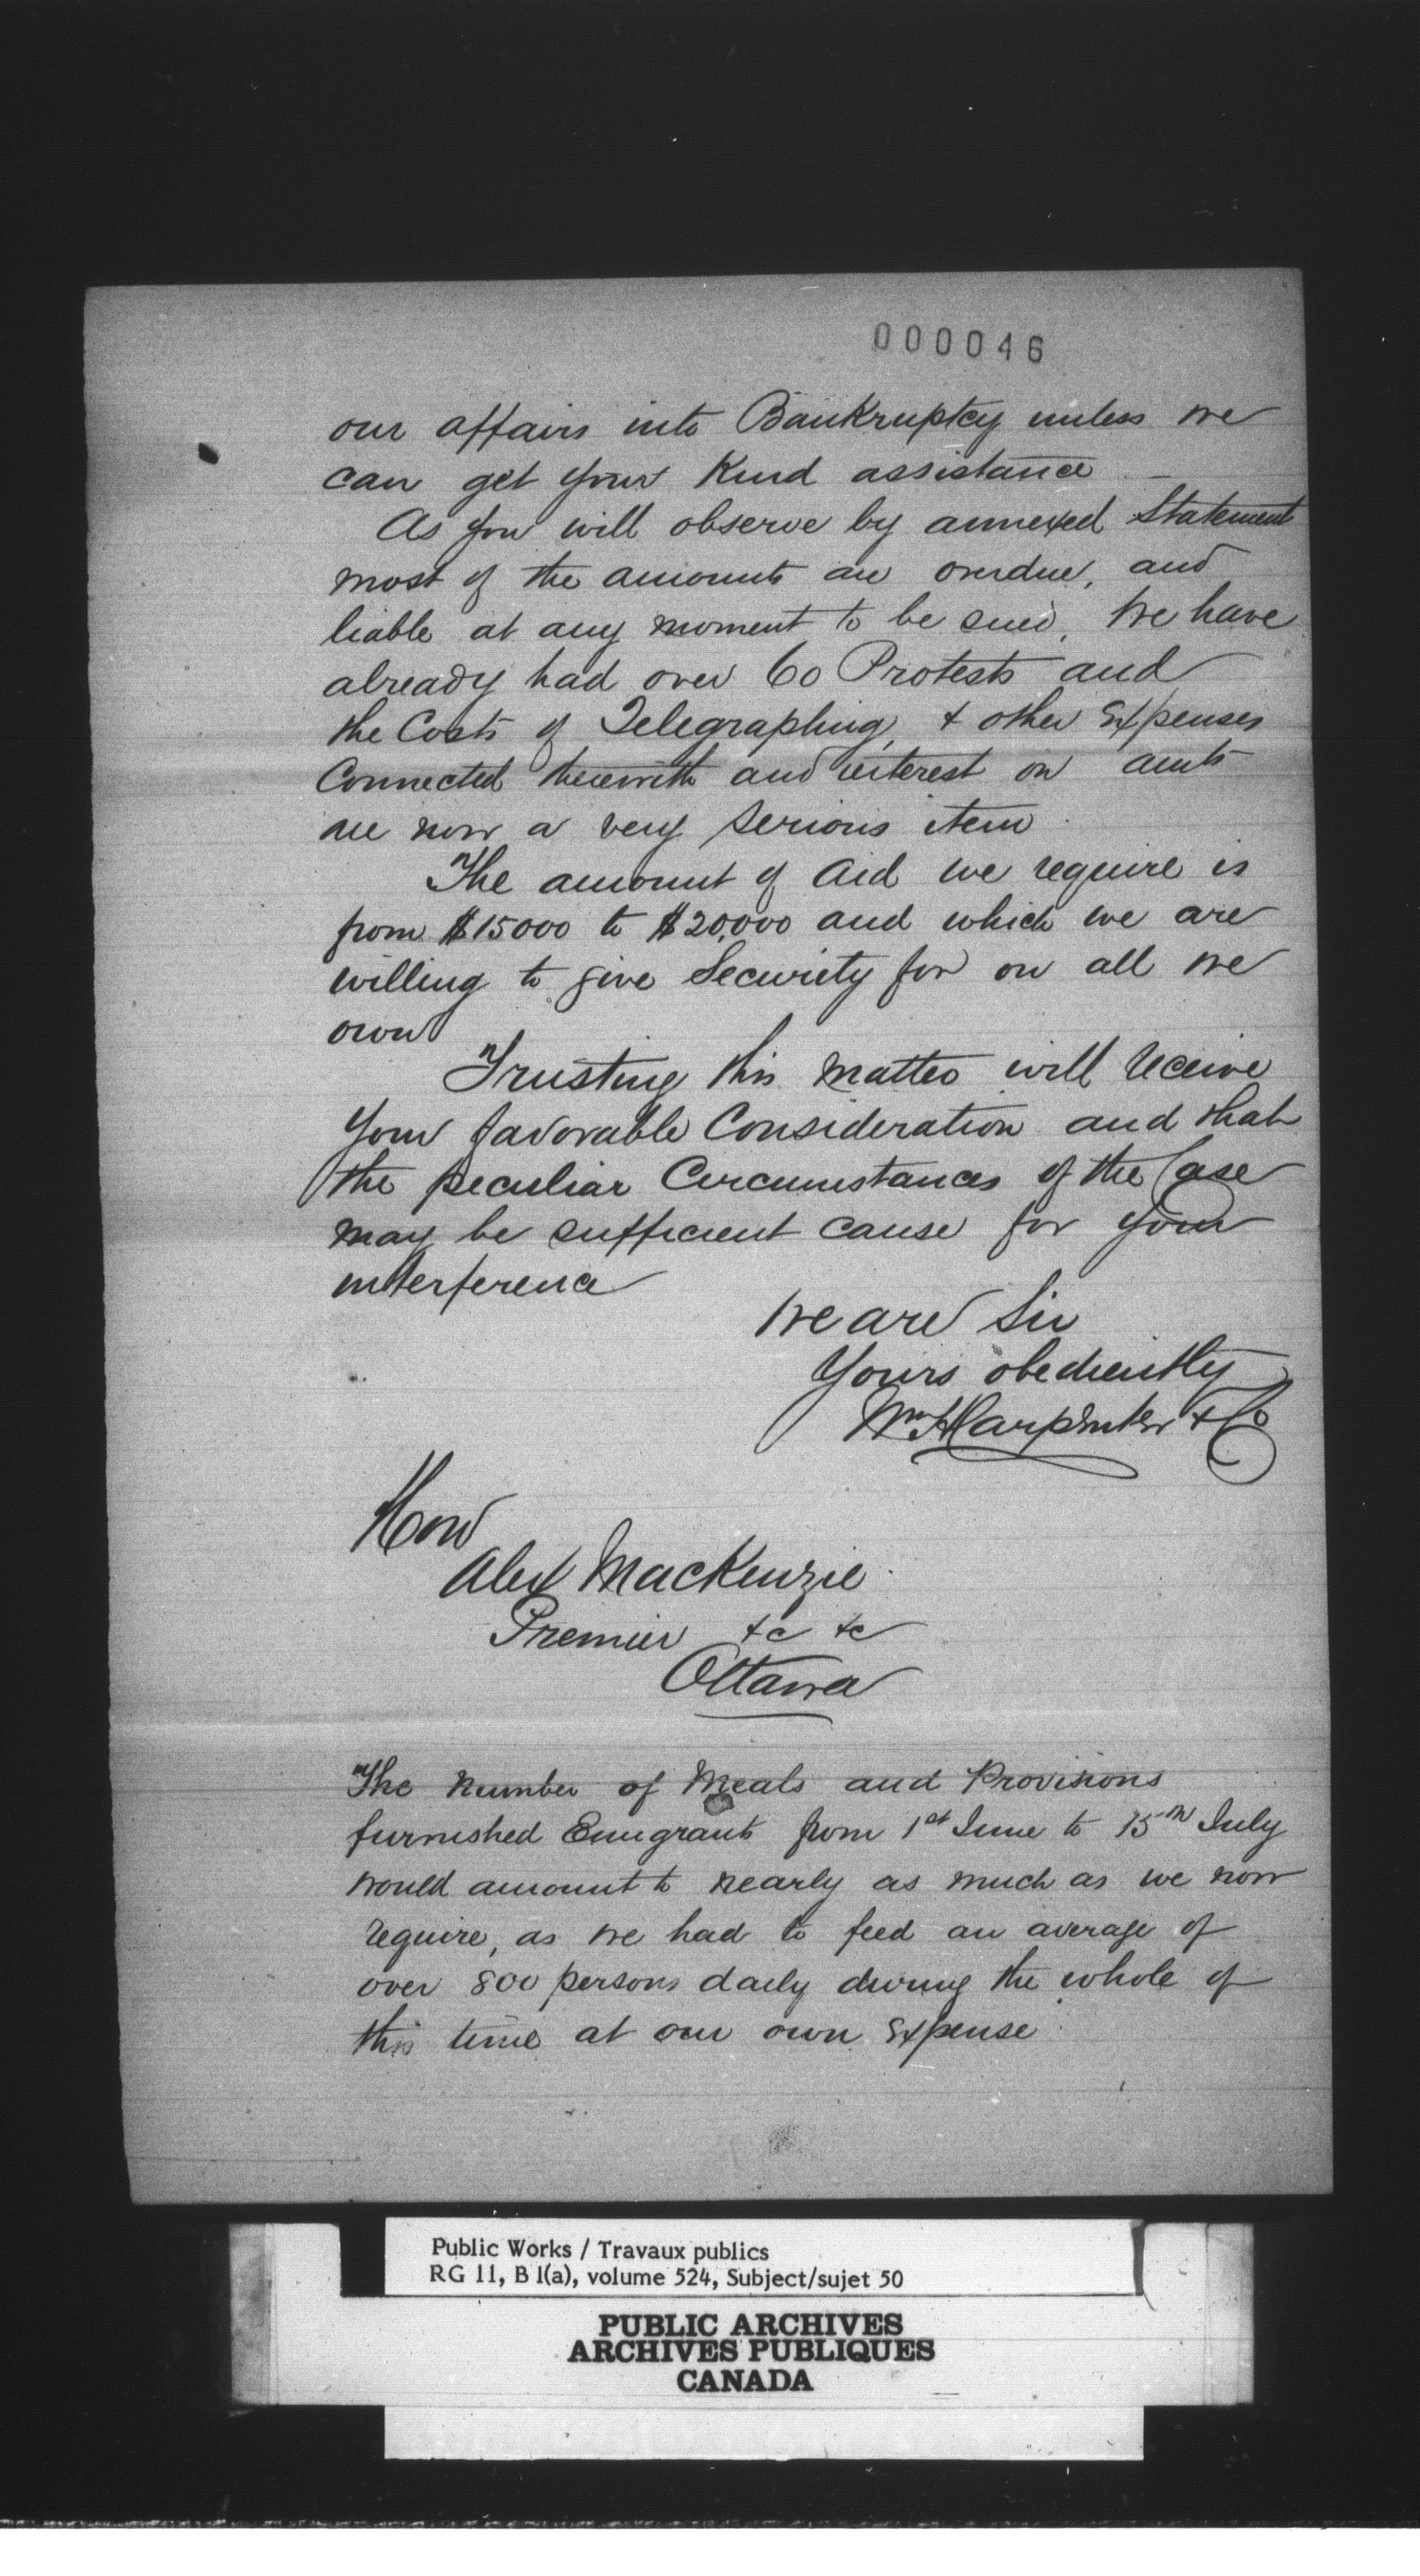 000046
our affairs into Bankruptcy unless we
can get your Kind assistance —
As you will observe by annexed Statement
most of the amounts are overdue, and
liable at any moment to be sued, We have
already had over 60 Protests and
the Costs of Telegraphing, & other Expenses
Connected therewith and interest on amts
are now a very serious item
The amount of aid we require is
from $15000 to $20,000 and which we are
willing to give Security for on all we
own
Trusting this matter will receive
your favorable Consideration and that
the peculiar Circumstances of the Case
may be sufficient cause for your
interference
We are Sir
Yours obediently
Wm H Carpenter & Co
Hon
Alex MacKenzie
Premier &c &c
Ottawa
The number of Meals and Provisions
furnished Emigrants from 1st June to 15th July
would amount to nearly as much as we now
require, as we had to feed an average of
over 800 persons daily during the whole of
this time at our own Expense
Public Works / Travaux publics
RG 11, B 1(a), volume 524, Subject/sujet 50
PUBLIC ARCHIVES
ARCHIVES PUBLIQUES
CANADA